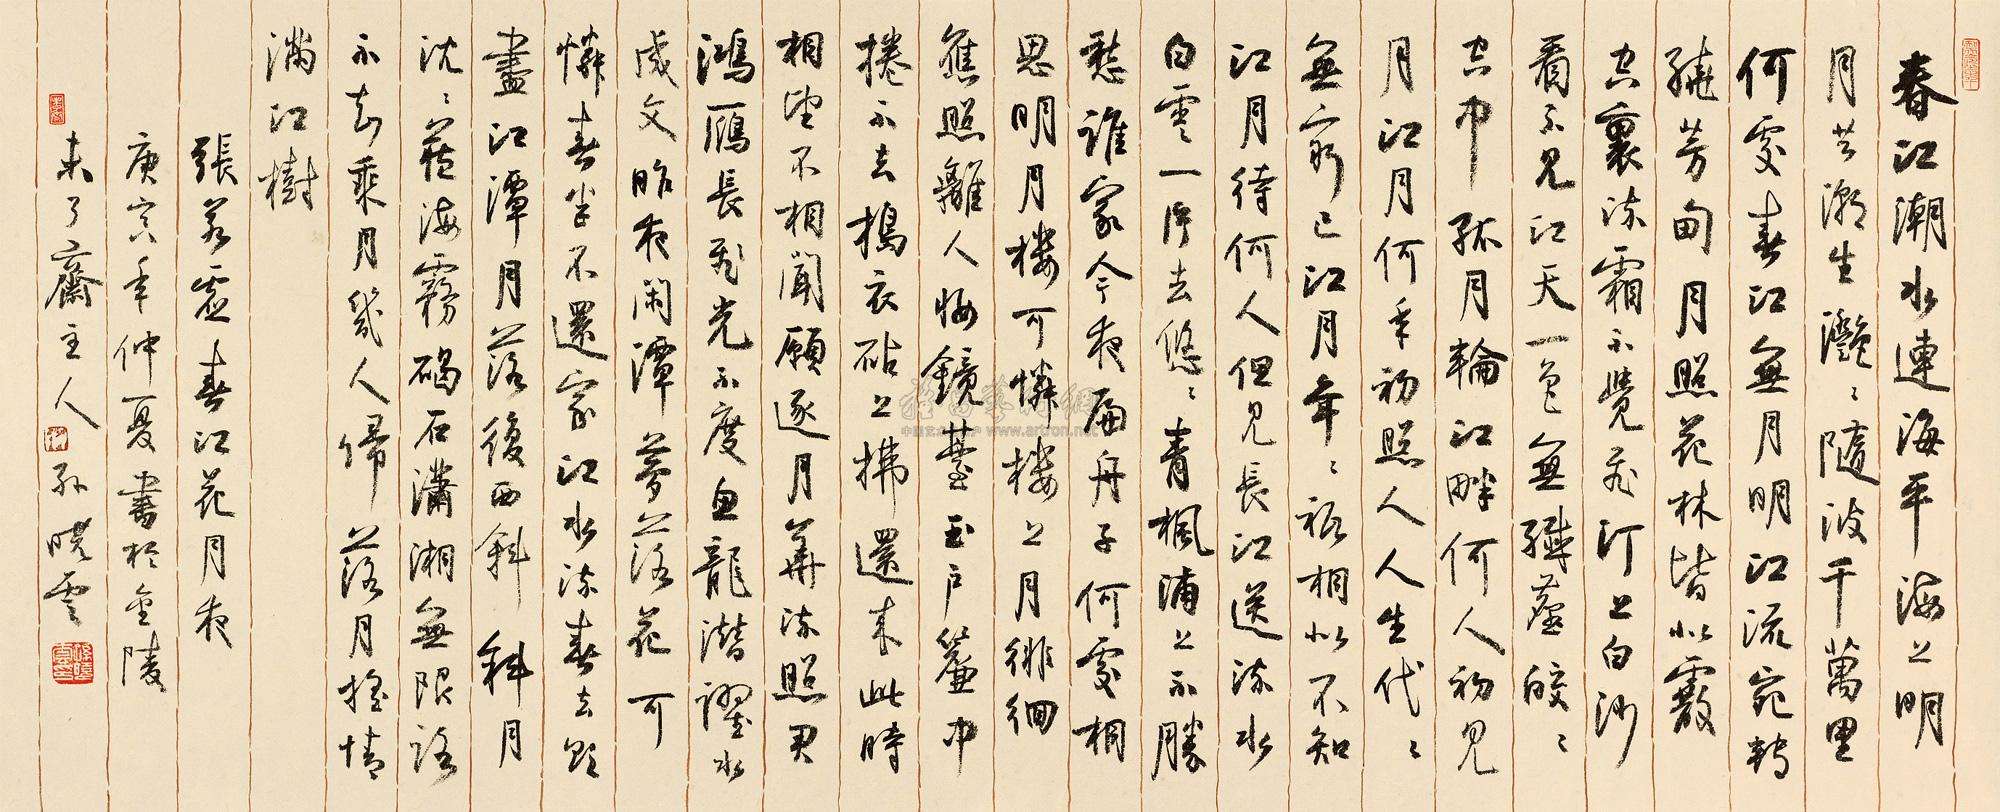 春江潮水連海平海上明
月共潮生灧〻隨波千萬里
何處春江無月明江流宛轉
繞芳甸月照花林皆似霰
空裏流霜不覺飛汀上白沙
看不見江天一色無纖塵皎〻
空中孤月輪江畔何人初見
月江月何年初照人人生代〻
無窮已江月年〻祇相似不知
江月待何人但見長江送流水
白雲一片去悠〻青楓浦上不勝
愁誰家今夜扁舟子何處相
思明月楼可憐楼上月徘徊
應照離人妝鏡臺玉戶簾中
捲不去搗衣砧上拂還來此時
相望不相聞願逐月華流照君
鴻鴈長飛光不度魚龍潛躍水
成文昨夜閑潭夢落花可
憐春半不還家江水流春去欲
盡江潭月落復西斜斜月
沈〻藏海霧碣石瀟湘無限路
不知乘月幾人歸落月搖情
滿江樹
張若虛春江花月夜
庚寅年仲夏書於金陵
未了齋主人孫曉雲
雅昌藝術網
www.artron.net